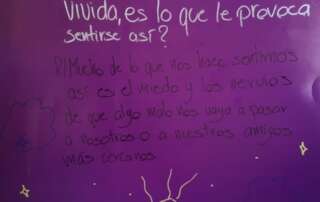 vivida, es lo que le provoca
sentirse así?
R/ Mucho de lo que nos hace sentirnos
así es el miedo y los nervios
de que algo malo nos vaya a pasar
a nosotros o a nuestros amigos
más cercanos